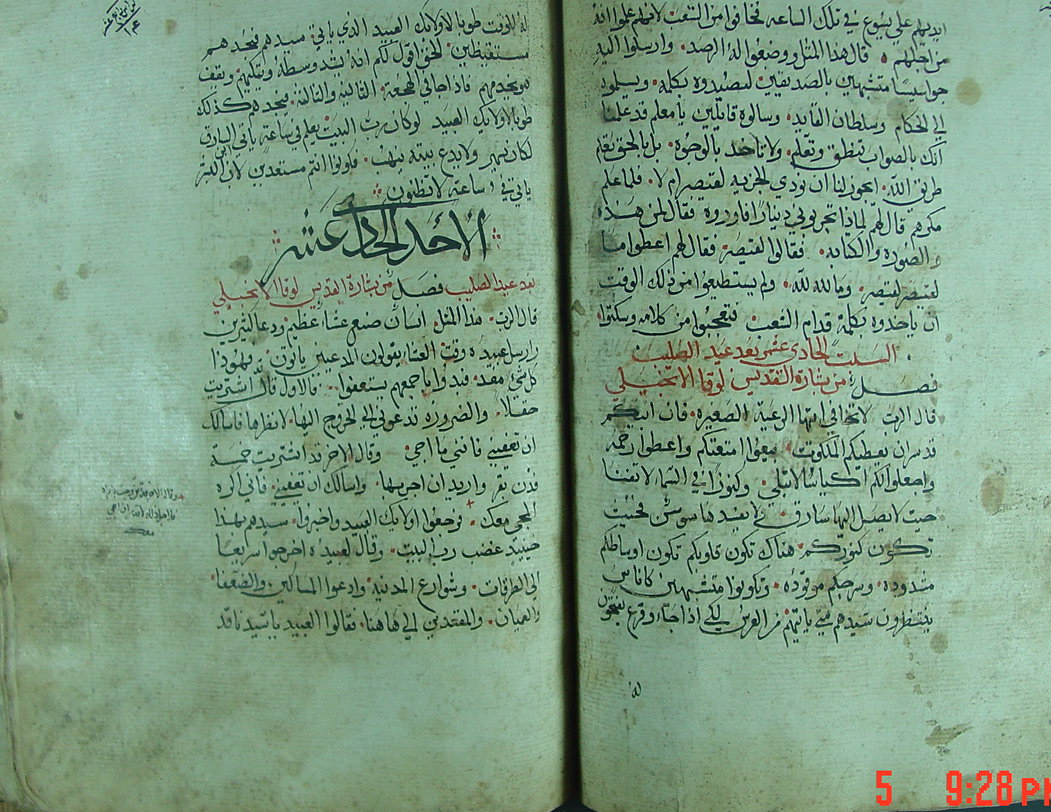 ايديهم على يسوع في تلك الساعه فخافوا من الشعب لانهم علموا انه
من اجلهم قال هذا المثل ووضعوا له الرصد وارسلوا اليه
جواسيسا متشبهين بالصديقين ليصيدوه بكلمه ويسلموه
الي الحكام وسلطان القايد وسالوه قايلين يا معلم قد علمنا
انك بالصواب تنطق وتعلم ولا تاخد بالوجوه بل بالحق تعلم
طريق الله ايجوز لنا ان نودي الجزيه لقيصر ام لا فلما علم
مكرهم قال لهم لماذا تجربوني دينارا فاوروه فقال لمن هذه
الصوره والكتابه فقالوا لقيصر فقال لهم اعطوا ما
لقيصر لقيصر وما لله لله ولم يستطيعوا من ذلك الوقت
ان ياخدوه بكلمة قدام الشعب فتعجبوا من كلامه وسكتوا
السبت الحادي عشر بعد عيد الصليب
فصل من بشارة القديس لوقا الانجيلي
قال الرب لا تخافي ايتها الرعية الصغيره فان ابيكم
قد سر ان يعطيكم الملكوت بيعوا امتعتكم واعطوا رحمه
واجعلوا لكم اكياسا لا تبلي وكنوزا في السما لا تفنا
حيت لا يصل اليها سارق ولا يفسدها سوس فحيت
تكون كنوزكم هناك تكون قلوبكم تكون اوساطكم
مشدوده وسرجكم موقوده وتكونوا متشبهين كاناس
ينتظرون سيدهم متي ياتيهم من العرس لكي اذا جا وقرع يفتحون
له
له للوقت طوبا لاولايك العبيد الذي ياتي سيدهم فيجدهم
مستيقظين الحق اقول لكم انه يشد وسطه ويتكيهم ويقف
ويخدمهم فاذا جا في الهجعة الثانية والثالثة فيجدهم كذلك
طوبا لاولايك العبيد لو كان رب البيت يعلم في اي ساعة ياتي السارق
لكان يسهر ولا يدع بيته ينهب فكونوا انتم مستعدين لان ابن البشر
ياتي في ساعة لا تظنون
الاحد الحادي عشر
بعد عيد الصليب فصل من بشارة القديس لوقا الانجيلي
قال الرب هذا المثل انسان صنع عشا عظيم ودعا كثيرين
وارسل عبيده وقت العشا يقولون المدعين ياتون فهوذا
كل شي معد فبدوا باجمعهم يستعفوا فالاول قال اشتريت
حقلا والضروره تدعوني الى الخروج اليها لانظرها فاسالك
ان تعفيني فانني ما اجي وقال الاخر قد اشتريت خمسة
فدن بقر واريد ان اجربها واسالك ان تعفيني فاني اكره
المجي معك فرجعوا اولايك العبيد واخبروا سيدهم بهذا
حينيد غضب رب البيت وقال لعبيده اخرجوا سريعا
الى الطرقات وشوارع المدينة وادعوا المساكين والضعفا
والعميان والمقعدين الي هاهنا فقالوا العبيد يا سيد ناقد
وقال الاخر
معك
5 9:28 PM